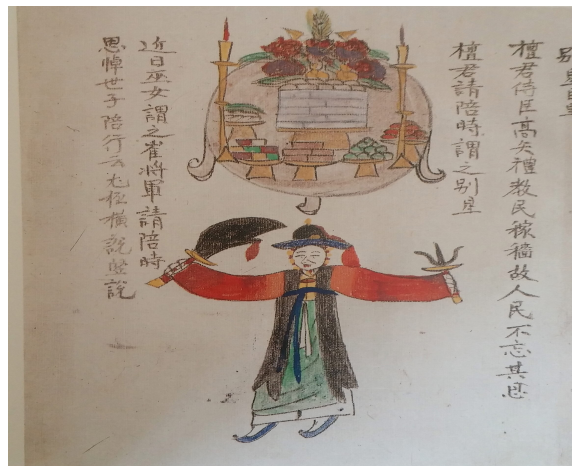 檀君侍臣高矢禮教民稼穡故人民不忘其恩
檀君請陪時謂之別星
近日巫女謂之崔將軍請陪時
思悼世子陪行云尤極橫說竪說